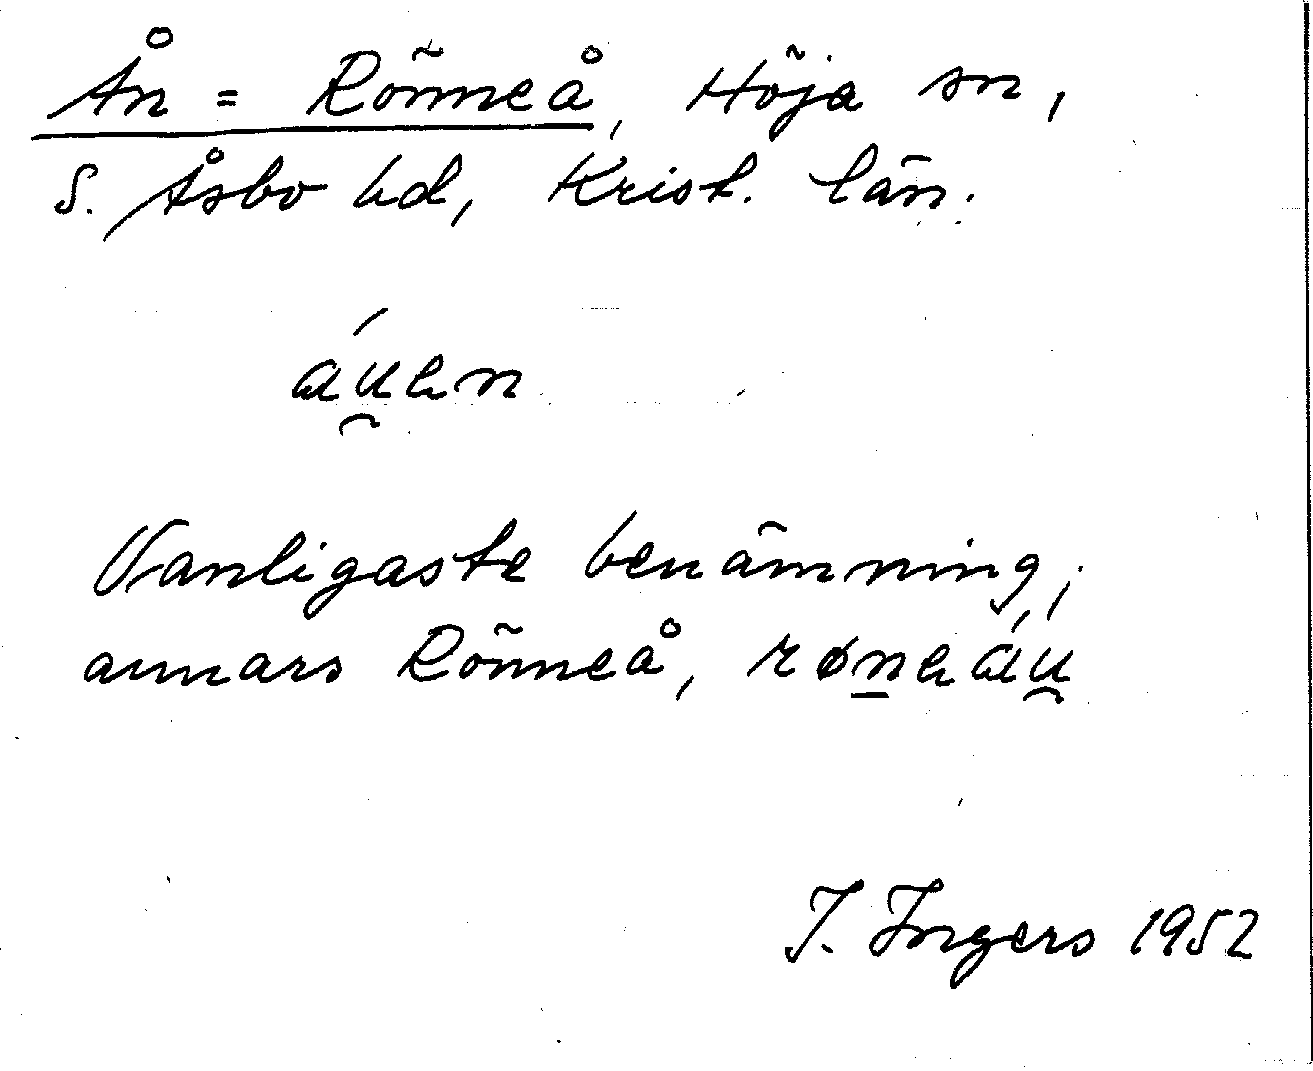 Ån = Rönneå, Höja sn,
S. Åsbo hd, Krist. län.
áu̯en
Vanligaste benämning,
annars Rönneå, røn̲eáu̯
I. Ingers 1952